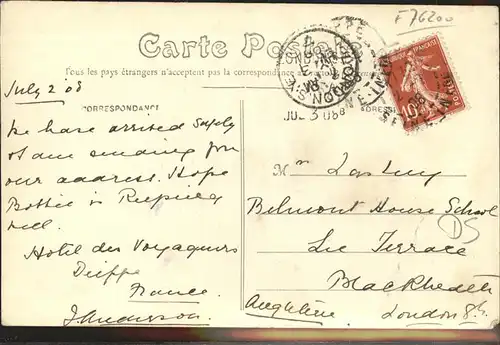 F 76200
Carte Postale
Tous les pays étrangers n'acceptent pas la correspondance
July 2 08
CORRESPONDANCE
JU 3 08
We have arrived safely
& am sending you
our address. Hope
Bottie is Keeping
well.
Hotel des Voyageurs
Dieppe
France.
J Anderson.
Mr
Belmont House School
DS
Lee Terrace
Blackheath
Angleterre
London